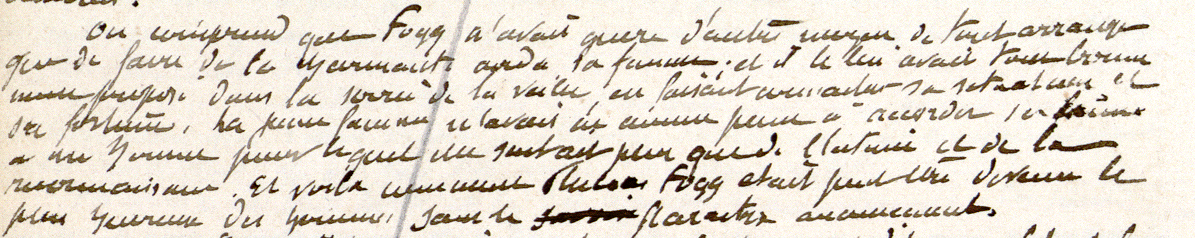 On comprend que Fogg n'avait guère d'autre moyen de tout arranger
que de faire de la charmante Aouda sa femme, et il le lui avait tout bonne
ment proposé dans la soirée de la veille, en faisant sa situation et
sa fortune. La jeune femme n'avait eu aucune peine à accorder sa main
à un homme pour lequel elle sentait plus que de l'estime et de la
reconnaissance. Et voilà comment Phileas Fogg était peut être devenu le
plus heureux des hommes, sans le paraître aucunement.